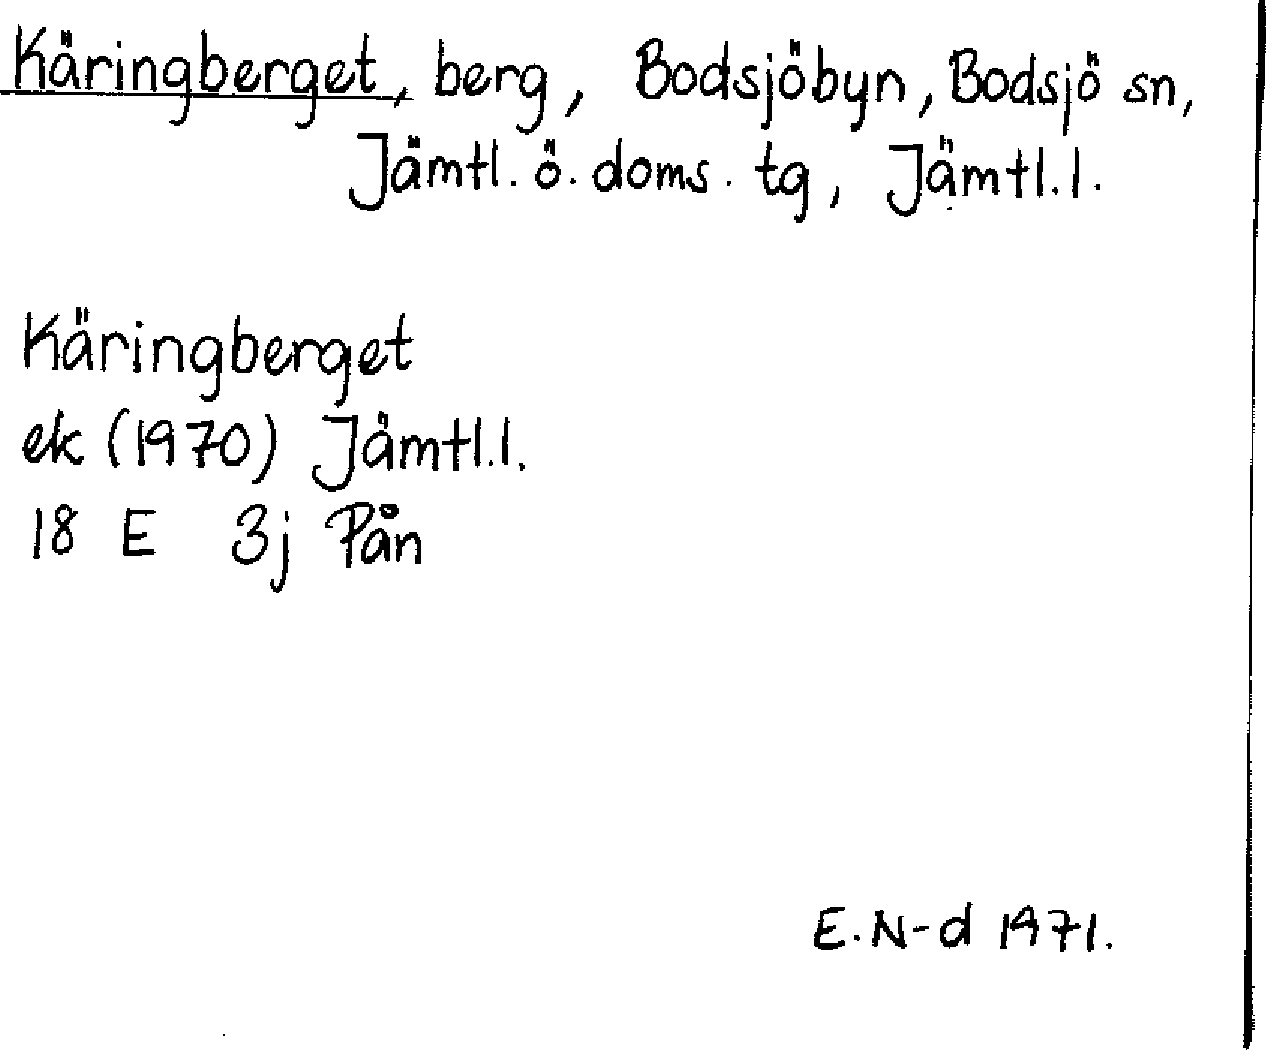 Käringberget, berg, Bodsjöbyn, Bodsjö sn,
Jämtl. ö. doms. tg, Jämtl. l.
Käringberget
ek (1970) Jämtl. l.
18 E 3j Pån
E. N-d 1971.